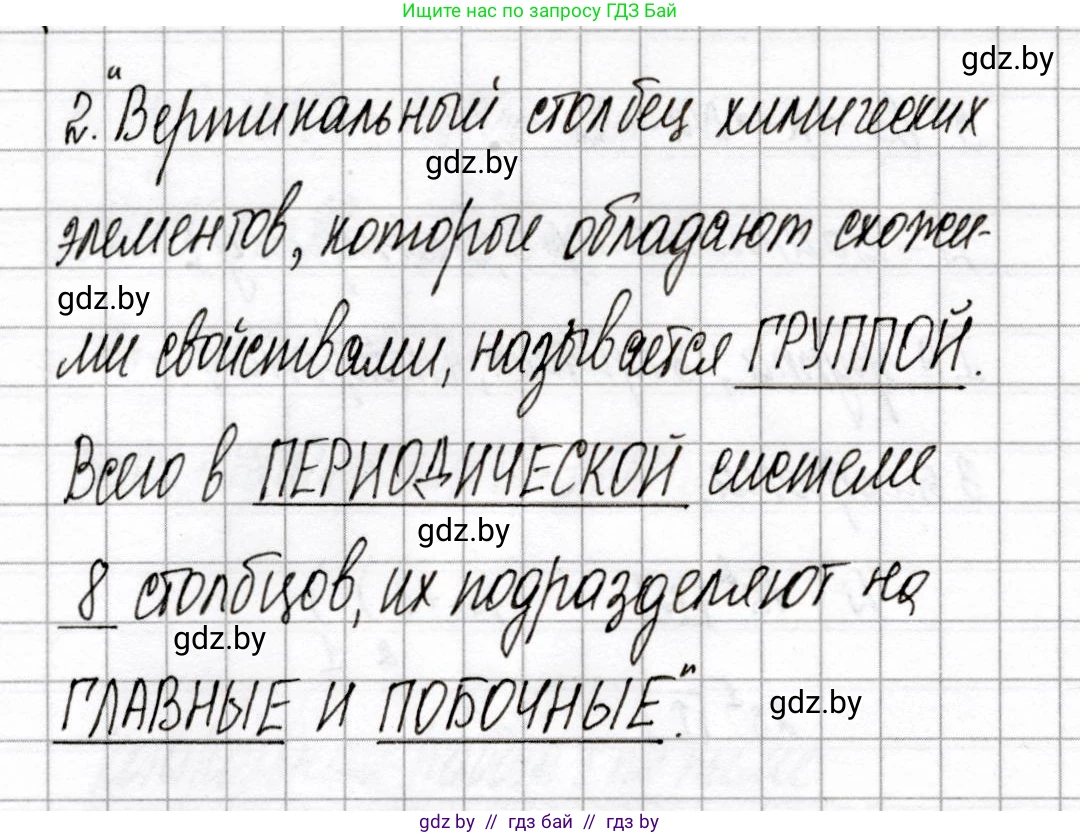 Ищите нас по запросу ГДЗ Бай
gdz.by
2. "Вертикальный столбец химических
gdz.by
элементов, которые обладают схожи-
gdz.by
ми свойствами, называется ГРУППОЙ.
Всего в ПЕРИОДИЧЕСКОЙ системе
gdz.by
8 столбцов, их подразделяют на
gdz.by
ГЛАВНЫЕ И ПОБОЧНЫЕ".
gdz.by
gdz.by // гдз бай // гдз by